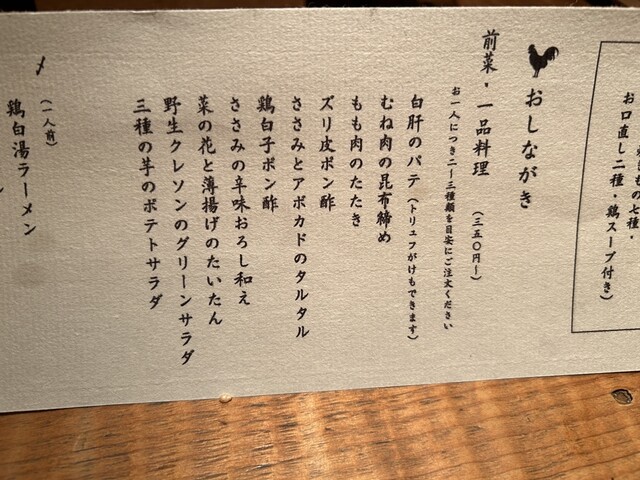 お口直し二種・鶏スープ付き）
おしながき
前菜・一品料理　（三五〇円〜）
お一人につき二〜三種類を目安にご注文ください
白肝のパテ（トリュフがけもできます）
むね肉の昆布締め
もも肉のたたき
ズリ皮ポン酢
ささみとアボカドのタルタル
鶏白子ポン酢
ささみの辛味おろし和え
菜の花と薄揚げのたいたん
野生クレソンのグリーンサラダ
三種の芋のポテトサラダ
（一人前）
鶏白湯ラーメン